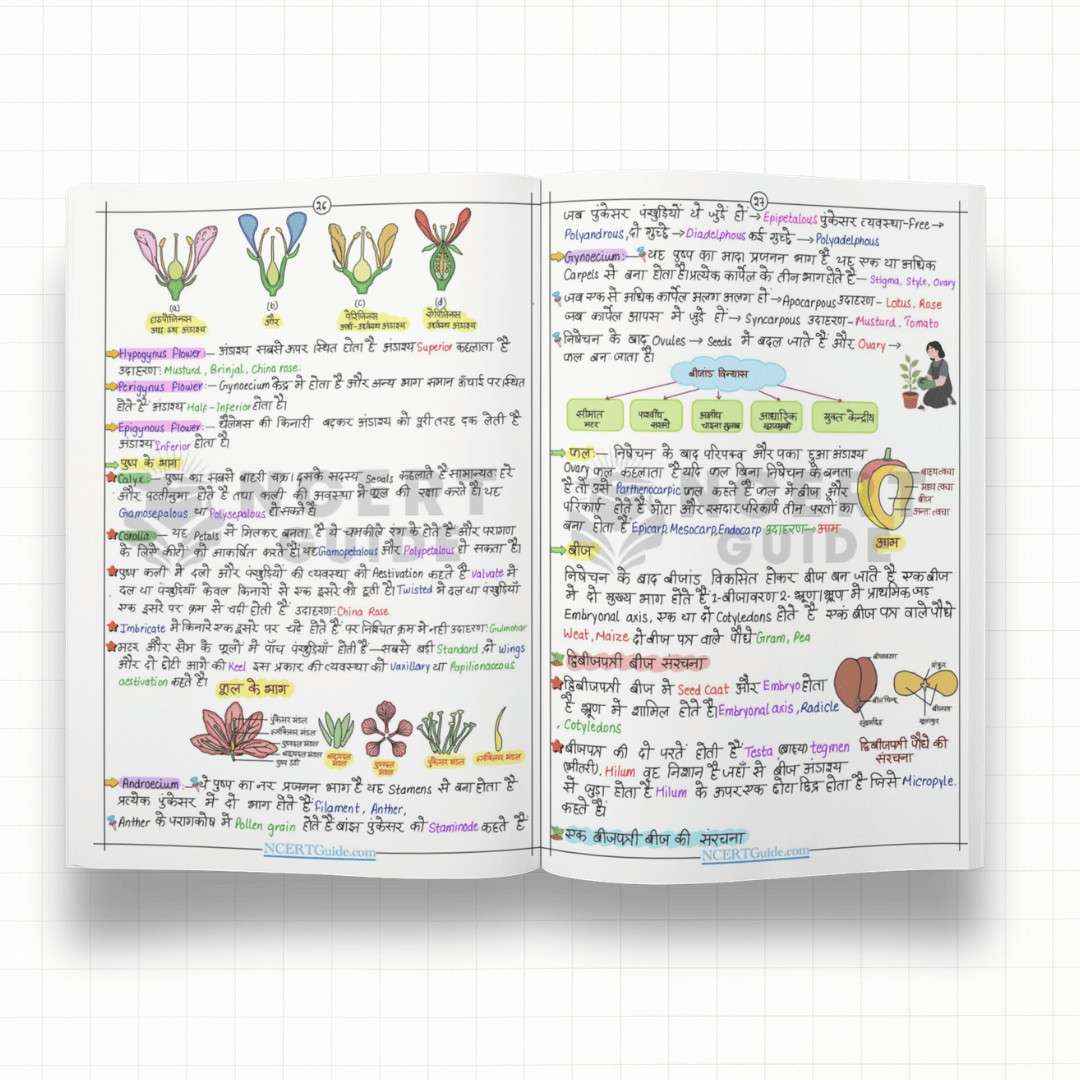 26
(a)
(b)
(c)
(d)
हाइपोगिनस
और
पेरिगिनस
एपिगिनस
Hypogynus Flower:— अंडाशय सबसे ऊपर स्थित होता है अंडाशय Superior कहलाता है
उदाहरण: Mustund, Brinjal, China rose.
Perigynus Flower:— Gynoecium केंद्र में होता है और अन्य भाग समान ऊँचाई पर स्थित
होते हैं अंडाशय Half-Inferior होता है।
Epigynous Flower:— थैलेमस की किनारी बढ़कर अंडाशय को पूरी तरह ढक लेती है
अंडाशय Inferior होता है।
पुष्प के भाग
Calyx:— पुष्प का सबसे बाहरी चक्र। इसके सदस्य Sepals कहलाते हैं सामान्यतः हरे
और पत्तीनुमा होते हैं तथा कली की अवस्था में फूल की रक्षा करते हैं। यह
Gamosepalous या Polysepalous हो सकते हैं।
Corolla — यह Petals से मिलकर बनता है ये चमकीले रंग के होते हैं और परागण
के लिये कीटों को आकर्षित करते हैं। यह Gamopetalous और Polypetalous हो सकता है।
पुष्प कली में दलों और पंखुड़ियों की व्यवस्था को Aestivation कहते हैं Valvate में
दल या पंखुड़ियाँ केवल किनारों से एक दूसरे को छूती हैं। Twisted में दल या पंखुड़ियाँ
एक दूसरे पर क्रम से चढ़ी होती हैं उदाहरण: China Rose
Imbricate में किनारे एक दूसरे पर चढ़े होते हैं पर निश्चित क्रम में नहीं उदाहरण: Gulmohar
मटर और सेम के फूलों में पाँच पंखुड़ियाँ होती हैं—सबसे बड़ी Standard, दो Wings
और दो छोटी आगे की Keel इस प्रकार की व्यवस्था को Vaxillary या Papilionaceous
aestivation कहते हैं।
फूल के भाग
पुंकेसर मंडल
स्त्रीकेसर मंडल
पुष्पदल मंडल
बाह्यदल मंडल
पुष्प डंडी
बाह्यदल मंडल
पुष्पदल मंडल
पुंकेसर मंडल
स्त्रीकेसर मंडल
Androecium:—ये पुष्प का नर प्रजनन भाग है यह Stamens से बना होता है
प्रत्येक पुंकेसर में दो भाग होते हैं filament, Anther,
Anther के परागकोष में Pollen grain होते हैं बांझ पुंकेसर को Staminode कहते हैं
NCERTGuide.com
27
जब पुंकेसर पंखुड़ियों से जुड़े हों → Epipetalous पुंकेसर व्यवस्था-Free →
Polyandrous, दो गुच्छे → Diadelphous कई गुच्छे → Polyadelphous
Gynoecium:— यह पुष्प का मादा प्रजनन भाग है यह एक या अधिक
Carpels से बना होता है। प्रत्येक कार्पेल के तीन भाग होते हैं— Stigma, Style, Ovary
जब एक से अधिक कार्पेल अलग अलग हों → Apocarpous उदाहरण- Lotus, Rose
जब कार्पेल आपस में जुड़े हों → Syncarpous उदाहरण- Musturd, Tomato
निषेचन के बाद Ovules → Seeds में बदल जाते हैं और Ovary →
फल बन जाता है।
बीजांड विन्यास
सीमांत
मटर
पार्श्वीय
सरसों
अक्षीय
चाइना गुलाब
आधारिक
सूरजमुखी
मुक्त केन्द्रीय
फल:— निषेचन के बाद परिपक्व और पका हुआ अंडाशय
Ovary फल कहलाता है यदि फल बिना निषेचन के बनता
है तो उसे Parthenocarpic फल कहते हैं फल में बीज और
परिकार्प होते हैं मोटा और रसदार परिकार्प तीन परतों का
बना होता है Epicarp, Mesocarp, Endocarp उदाहरण— आम
बाह्यत्वचा
मध्य त्वचा
बीज
अन्तः त्वचा
आम
बीज
निषेचन के बाद बीजांड विकसित होकर बीज बन जाते हैं एक बीज
में दो मुख्य भाग होते हैं 1-बीजावरण 2- भ्रूण। भ्रूण में प्राथमिक जड़
Embryonal axis, एक या दो Cotyledons होते हैं एक बीज पत्र वाले पौधे
Weat, Maize दो बीज पत्र वाले पौधे Gram, Pea
द्विबीजपत्री बीज संरचना
द्विबीजपत्री बीज में Seed Caat और Embryo होता
है भ्रूण में शामिल होते हैं। Embryonal axis, Radicle
, Cotyledons
बीजावरण
प्रांकुर
बीजपत्र
मूलांकुर
द्विबीजपत्री पौधे की
संरचना
बीजपत्र की दो परतें होती हैं Testa (बाह्य) tegmen
(भीतरी). Hilum वह निशान है जहाँ से बीज अंडाशय
से जुड़ा होता है Hilum के ऊपर एक छोटा छिद्र होता है जिसे Micropyle.
कहते हैं।
एक बीजपत्री बीज की संरचना
NCERTGuide.com
NCERT
GUIDE
NCERT
GUIDE